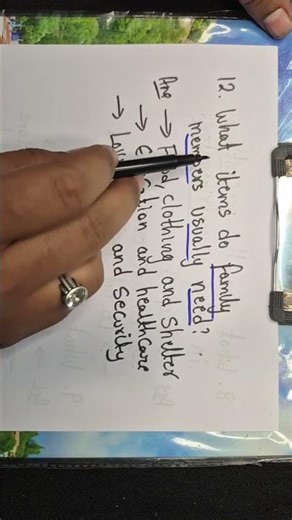 12. What items do family
members usually need?
Ans → Food, clothing and shelter
→ Education and healthcare
→ and security